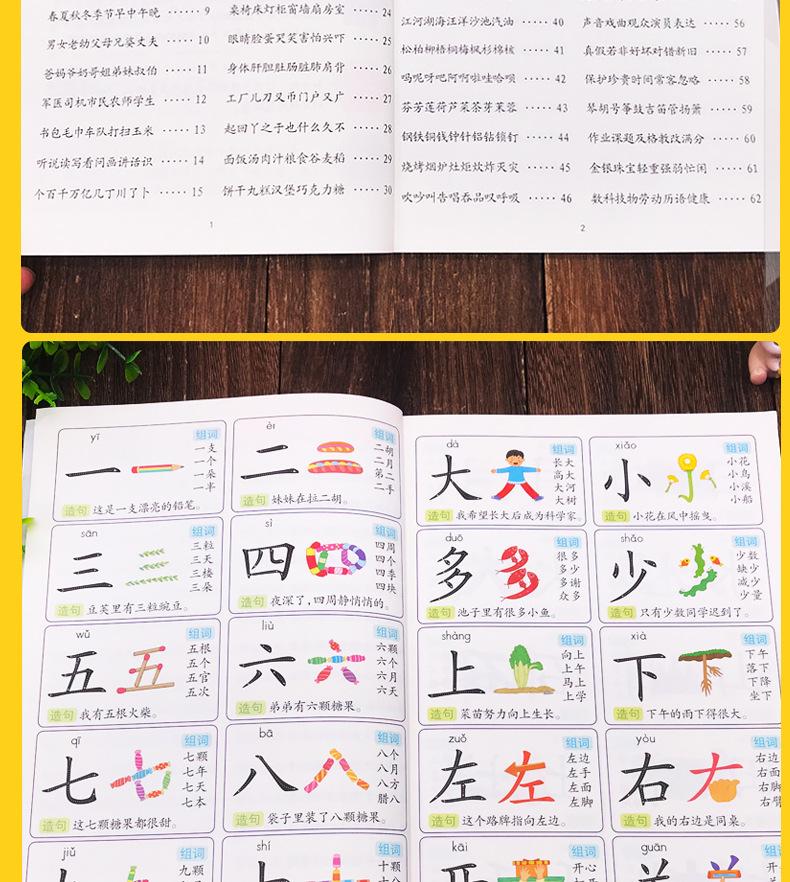 春夏秋冬季节早中午晚 ······ 9
男女老幼父母兄婆丈夫 ····· 10
爸妈爷奶哥姐弟妹叔伯 ····· 11
军医司机市民农师学生 ····· 12
书包毛巾车队打扫玉米 ····· 13
听说读写看问画讲语识 ····· 14
个百千万亿几丁川了卜 ····· 15
桌椅床灯柜窗墙扇房室 ···· 24
眼睛脸蛋哭笑害怕兴吓 ···· 25
身体肝胆肚肠脏肺肩背 ···· 26
工厂儿刀叉币门户又广 ···· 27
起回丫之于也什么久不 ···· 28
面饭汤肉汁粮食谷麦稻 ···· 29
饼干丸糕汉堡巧克力糖 ···· 30
1
江河湖海汪洋沙池汽油 ····· 40
松柏柳梧桐梅枫杉棉核 ····· 41
吗呢呀吧阿啊啦哇哈呗 ····· 42
芬芳莲荷芦菜茶芽茉蓉 ····· 43
钢铁铜钱钟针铝钻锁钉 ····· 44
烧烤烟炉灶炬炊炸灭灾 ····· 45
吹吵叫告唱吞品叹呼吸 ····· 46
声音戏曲观众演员表达 ····· 56
真假若非好坏对错新旧 ····· 57
保护珍贵时间常客忽略 ····· 58
琴胡号筝鼓吉笛管扬萧 ····· 59
作业课题及格教改满分 ····· 60
金银珠宝轻重强弱忙闲 ····· 61
数科技物劳动历语健康 ····· 62
2
yī
一
组词
一支
一个
一朵
一半
造句 这是一支漂亮的铅笔。
èr
二
组词
二胡
二月
第二
二手
造句 妹妹在拉二胡。
sān
三
组词
三粒
三天
三楼
三朵
造句 豆荚里有三粒豌豆。
sì
四
组词
四周
四个
四季
四块
造句 夜深了,四周静悄悄的。
wǔ
五
组词
五根
五个
五官
五次
造句 我有五根火柴。
liù
六
组词
六颗
六个
六月
六天
造句 弟弟有六颗糖果。
qī
七
组词
七颗
七年
七天
七本
造句 这七颗糖果都很甜。
bā
八
组词
八个
八月
八方
腊八
造句 袋子里装了八颗糖果。
jiǔ
组词
九颗
shí
组词
十颗
dà
大
组词
长大
高大
大河
大树
造句 我希望长大后成为科学家。
xiǎo
小
组词
小花
小鸟
小溪
小船
造句 小花在风中摇曳。
duō
多
组词
很多
多少
多谢
众多
造句 池子里有很多小鱼。
shǎo
少
组词
少数
缺少
减少
少量
造句 只有少数同学迟到了。
shàng
上
组词
向上
上午
马上
上学
造句 菜苗努力向上生长。
xià
下
组词
下午
落下
下降
坐下
造句 下午的雨下得很大。
zuǒ
左
组词
左边
左手
左面
左脚
造句 这个路牌指向左边。
yòu
右
组词
右边
右面
右脚
右臂
造句 我的右边是同桌。
kāi
组词
开心
guān
组词